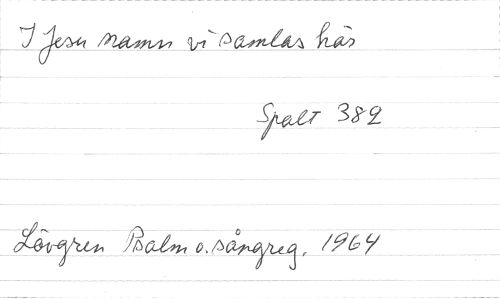 I Jesu namn vi samlas här
Spalt 382
Lövgren Psalm o. sångreg. 1964